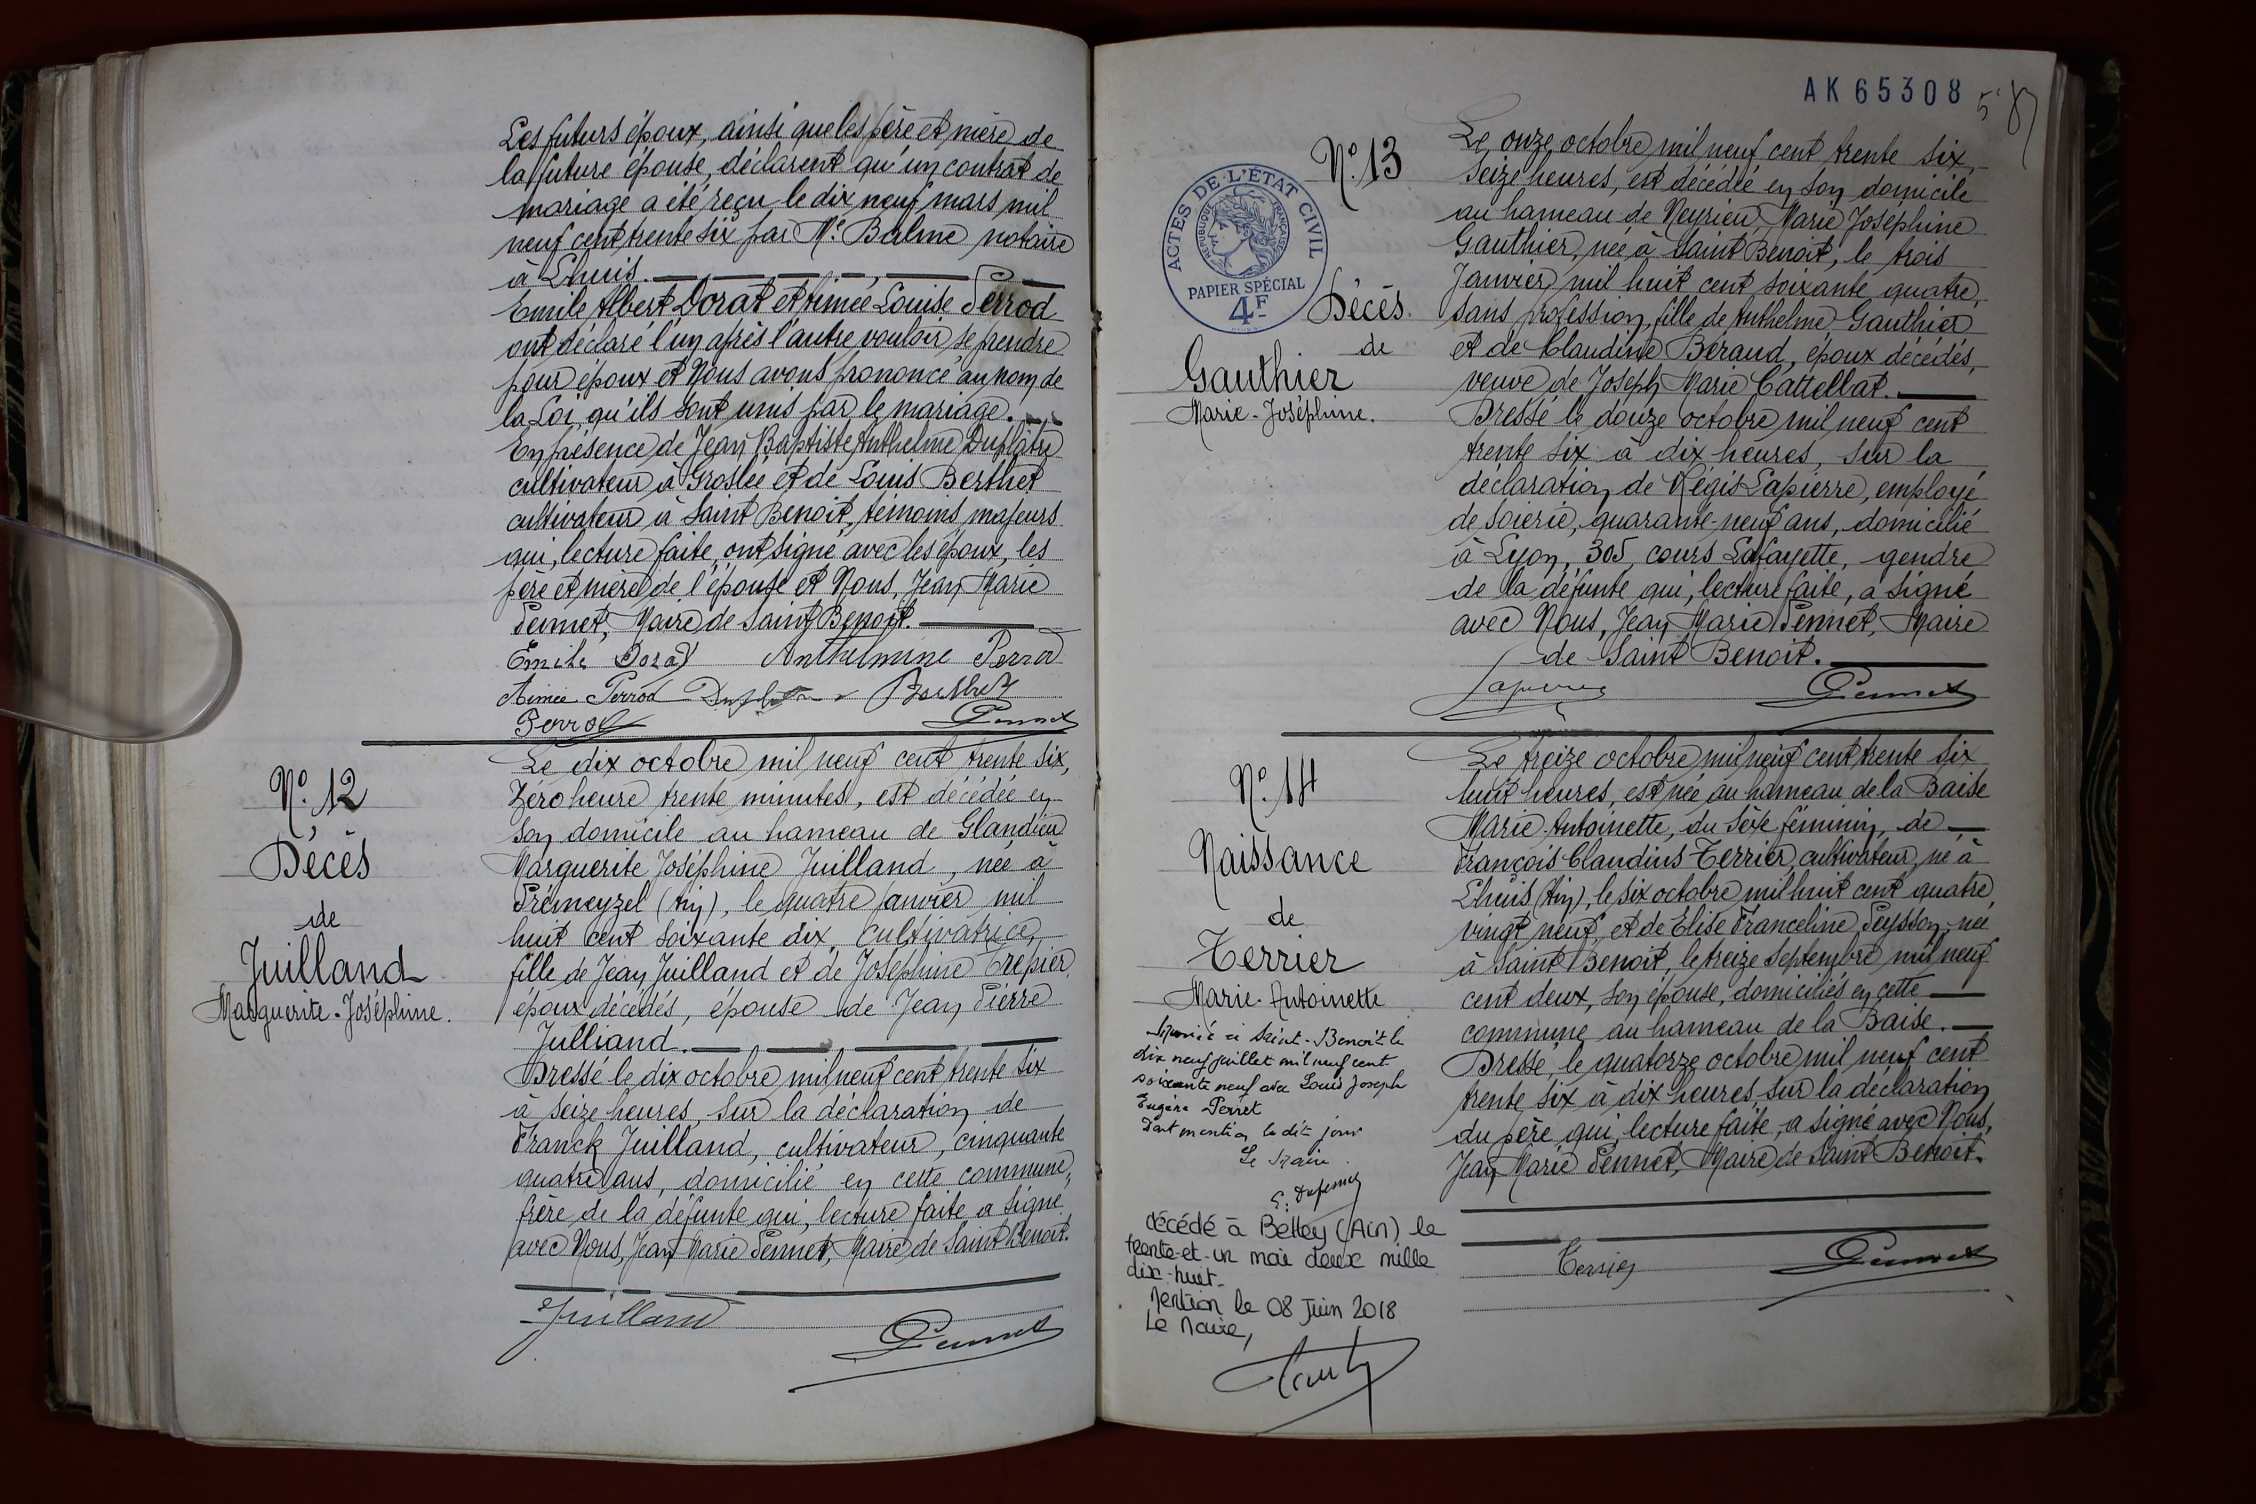 Les futurs époux, ainsi que les père et mère de
la future épouse, déclarent qu'un contrat de
mariage a été reçu le dix neuf mars mil
neuf cent trente six par Me Balme notaire
à Lhuis.
Emile Albert Dorat et Aimée Louise Perrod
ont déclaré l'un après l'autre vouloir se prendre
pour époux et Nous avons prononcé au nom de
la Loi, qu'ils sont unis par le mariage.
En présence de Jean Baptiste Anthelme Duplâtre
cultivateur à Groslée et de Louis Berthet
cultivateur à Saint Benoit, témoins majeurs
qui, lecture faite, ont signé avec les époux, les
père et mère de l'épouse et Nous, Jean Marie
Pennet, Maire de Saint Benoit.
Emile Dorat Anthelmine Perrod
Aimée Perrod Duplatre Berthet
Perrod Pennet
No. 12
Décès
de
Juilland
Marguerite-Joséphine.
Le dix octobre mil neuf cent trente six,
zéro heure trente minutes, est décédée en
son domicile au hameau de Glandieu
Marguerite Joséphine Juilland, née à
Prémeyzel (Ain), le quatre janvier mil
huit cent soixante dix, cultivatrice,
fille de Jean Juilland et de Joséphine Trepier,
époux décédés, épouse de Jean Pierre
Julliand.
Dressé le dix octobre mil neuf cent trente six
à seize heures, sur la déclaration de
Franck Juilland, cultivateur, cinquante
quatre ans, domicilié en cette commune,
frère de la défunte qui, lecture faite a signé
avec Nous, Jean Marie Pennet, Maire de Saint Benoit.
Juilland
Pennet
AK 65308
No. 13
ACTES DE L'ÉTAT CIVIL
RÉPUBLIQUE FRANÇAISE
PAPIER SPÉCIAL
4F
Décès
de
Gauthier
Marie-Joséphine.
Le onze octobre mil neuf cent trente six,
seize heures, est décédée en son domicile
au hameau de Neyrieu, Marie Joséphine
Gauthier, née à Saint Benoit, le trois
Janvier mil huit cent soixante quatre,
sans profession, fille de Anthelme Gauthier
et de Claudine Béraud, époux décédés,
veuve de Joseph Marie Cattellat.
Dressé le douze octobre mil neuf cent
trente six à dix heures, sur la
déclaration de Régis Lapierre, employé
de soierie, quarante-neuf ans, domicilié
à Lyon, 305, cours Lafayette, gendre
de la défunte qui, lecture faite, a signé
avec Nous, Jean Marie Pennet, Maire
de Saint Benoit.
Lapierre Pennet
No. 14
Naissance
de
Terrier
Marie-Antoinette
Marié à Saint-Benoit le
dix neuf juillet mil neuf cent
soixante neuf avec Louis Joseph
Eugène Perret
Dont mention le dit jour
Le Maire.
décédé à Belley (Ain) le
trente-et-un mai deux mille
dix-huit-
Mention le 08 Juin 2018
Le Maire,
Le treize octobre mil neuf cent trente six
huit heures, est née au hameau de la Baise
Marie-Antoinette, du sexe féminin, de
François Claudius Terrier, cultivateur, né à
Lhuis (Ain), le six octobre mil huit cent quatre
vingt neuf, et de Elise Franceline Peysson, née
à Saint Benoit, le treize Septembre mil neuf
cent deux, son épouse, domiciliés en cette
commune au hameau de la Baise.
Dressé, le quatorze octobre mil neuf cent
trente six à dix heures, sur la déclaration
du père qui, lecture faite, a signé avec Nous,
Jean Marie Pennet, Maire de Saint Benoit.
Terrier Pennet